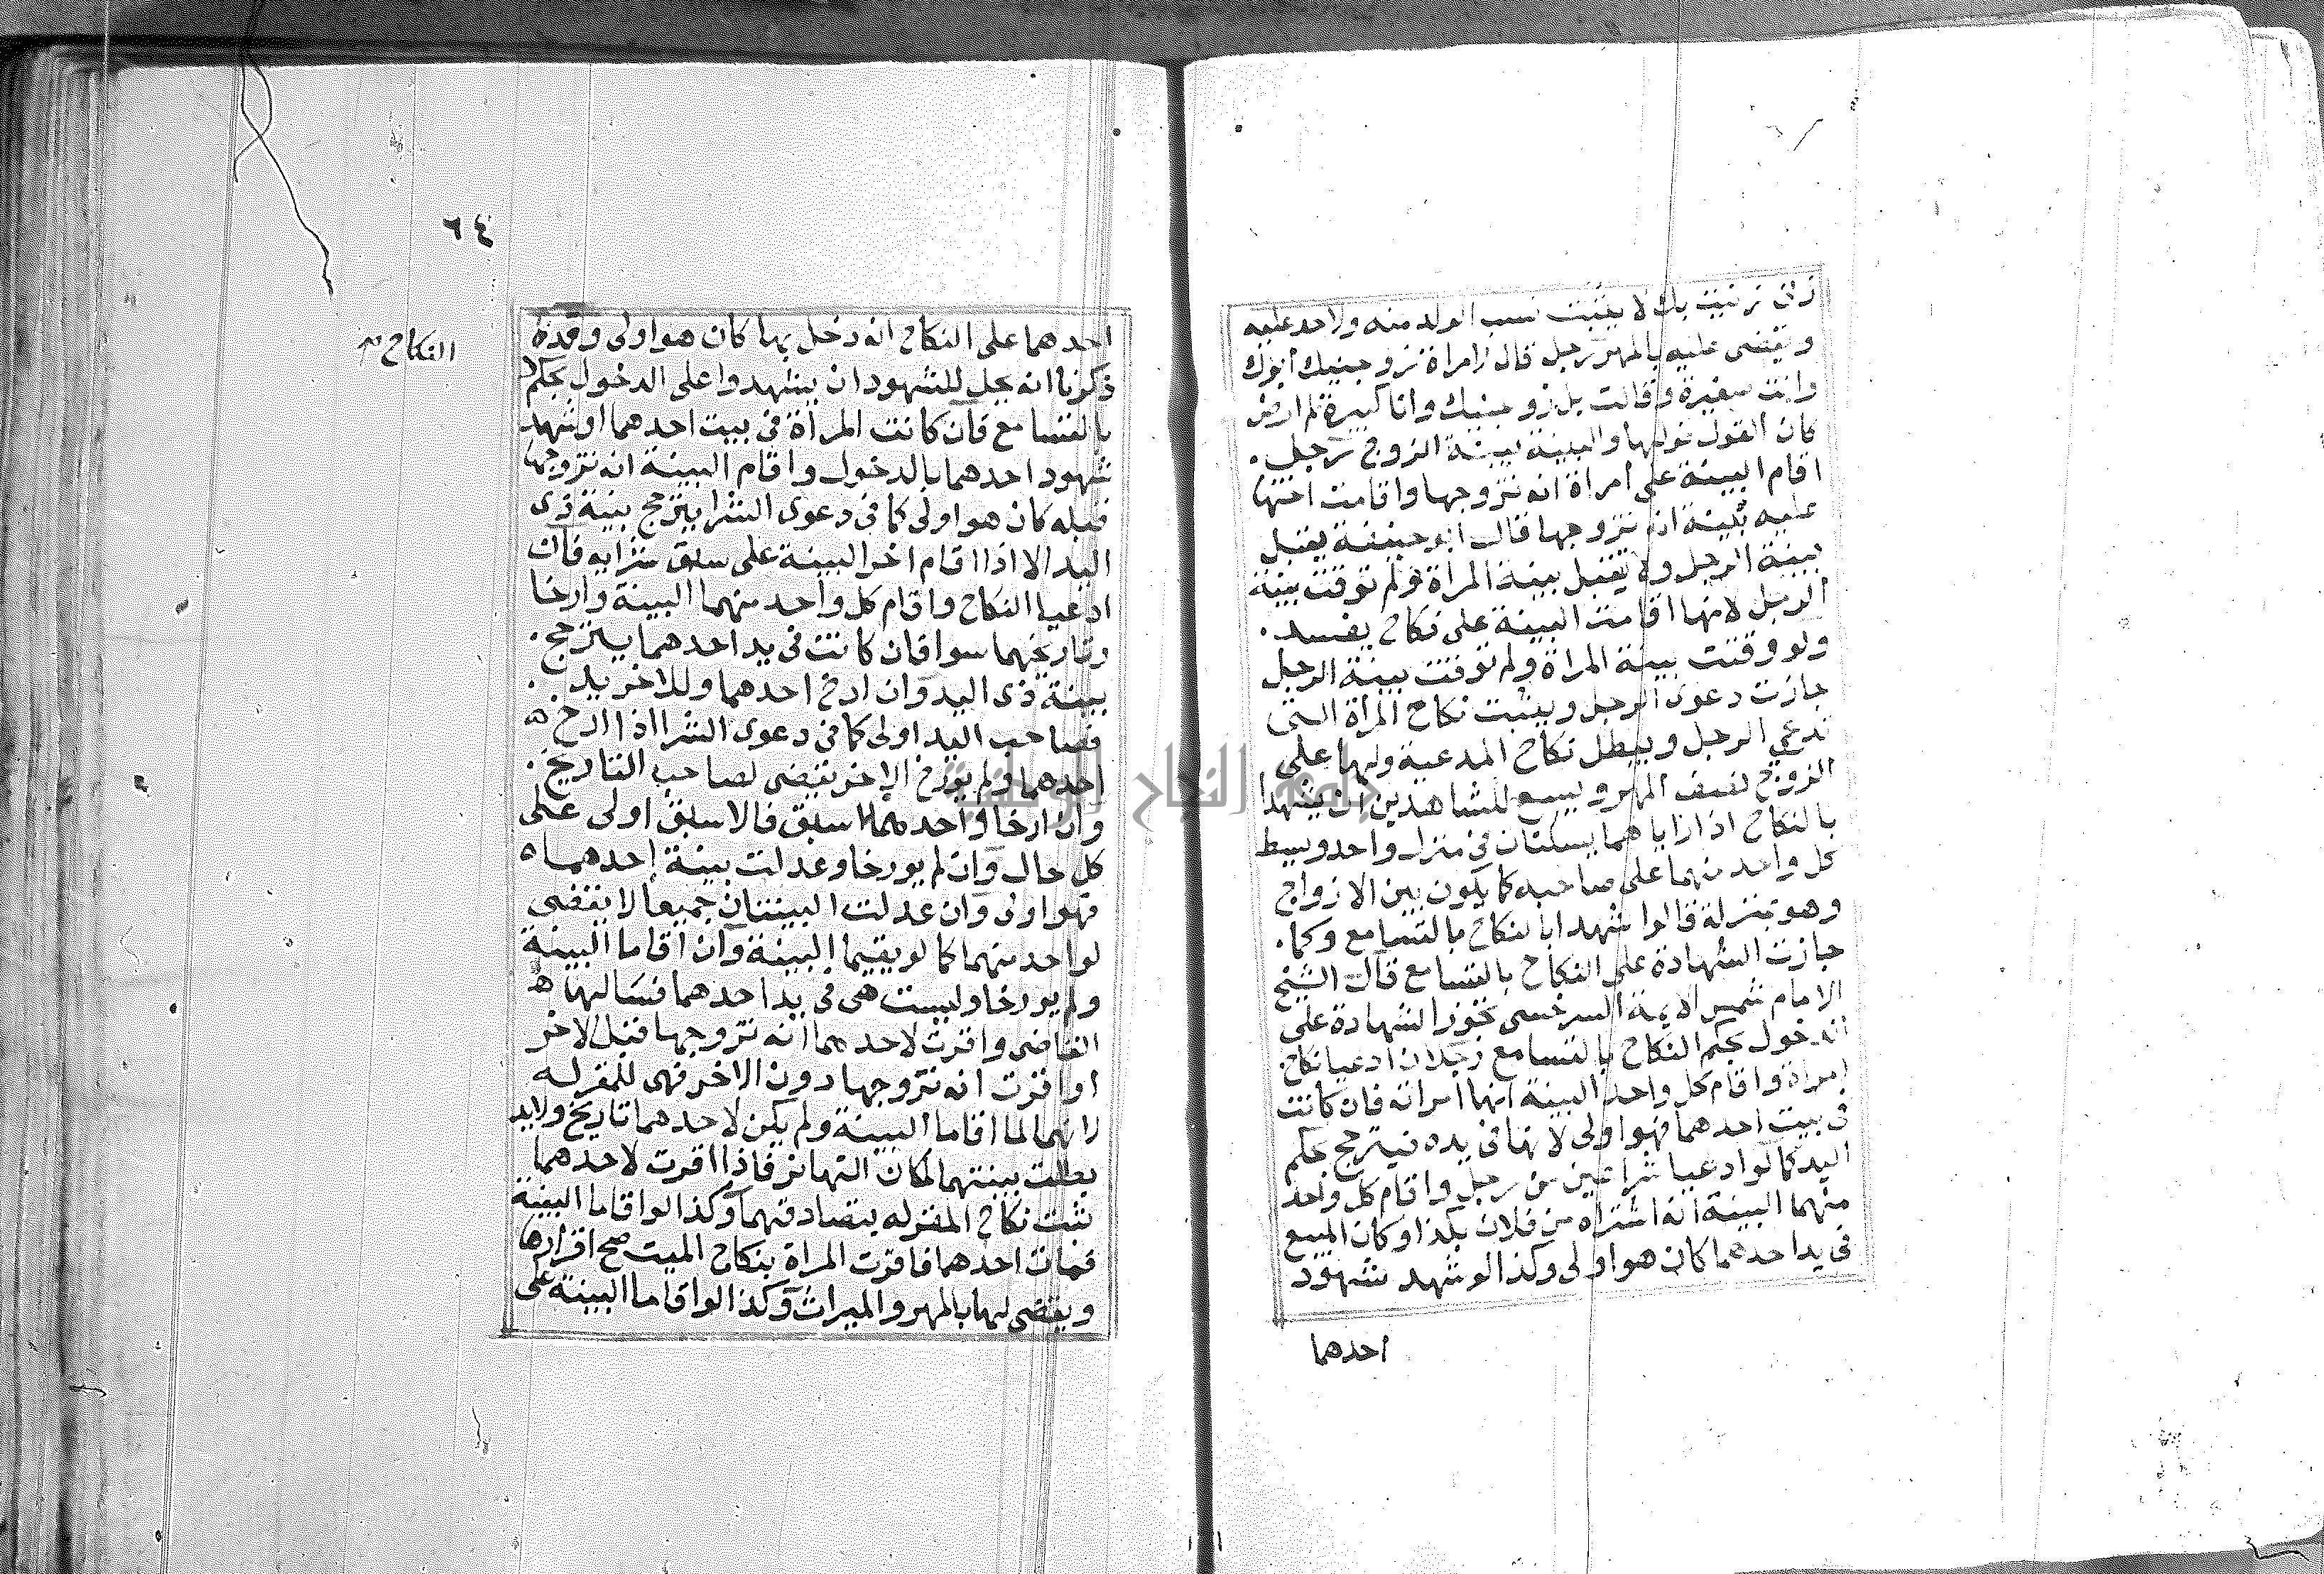 زنى زنيت بك لا يثبت نسب الولد منه ولا حد عليه
ويقضى عليه بالمهر رجل قال لامراة تزوجنيك ابوك
وانت صغيرة وقالت بل زوجنيك وانا كبيرة لم ارض
كان القول قولها والبينة بينة الزوج رجل
اقام البينة على امراة انه تزوجها واقامت اختها
عليه بينة انه تزوجها قال ابو حنيفة يقبل
بينة الرجل ولا يقبل بينة المراة ولم توقت بينة
الرجل لانها اقامت البينة على نكاح يفسد
ولو وقتت بينة المراة ولم توقت بينة الرجل
جازت دعوى الرجل ويثبت نكاح المراة التى
تدعي الرجل ويبطل نكاح المدعية ولها على
الزوج نصف المهر ويسع للشاهدين ان يشهدا
بالنكاح اذا رايا هما يسكنان فى منزل واحد وبسط
كل واحد منهما على صاحبه كما يكون بين الازواج
وهو بمنزلة قالوا شهدا بالنكاح بالتسامع وكما
جازت الشهادة على النكاح بالتسامع قال الشيخ
الامام شمس الايمة السرخسى تجوز الشهادة على
الدخول بحكم النكاح بالتسامع رجلان ادعيا نكاح
امراة واقام كل واحد البينة انها امراته فان كانت
فى بيت احدهما فهو اولى لانها فى يده فيترجح بحكم
اليد كما لو ادعيا شرا عين من رجل واقام كل واحد
منهما البينة انه اشتراه من فلان بكذا وكان المبيع
فى يد احدهما كان هو اولى وكذا لو شهد شهود
احدهما
٦٤
النكاح
احدهما على النكاح انه دخل بها كان هو اولى وقد
ذكرنا انه يحل للشهود ان يشهدوا على الدخول بحكم
بالتسامع فان كانت المراة فى بيت احدهما او شهد
شهود احدهما بالدخول واقام البينة انه تزوجها
قبله كان هو اولى كما فى دعوى الشرا يترجح بينة ذى
اليد الا اذا اقام اخر البينة على سبق شرايه فان
ادعيا النكاح واقام كل واحد منهما البينة وارخا
وتاريخهما سوا فان كانت فى يد احدهما يترجح
بينة ذى اليد وان ارخ احدهما وللاخر يد
فصاحب اليد اولى كما فى دعوى الشرا اذا ارخ
احدهما ولم يورخ الاخر يقضى لصاحب التاريخ
وان ارخا واحدهما اسبق فالاسبق اولى على
كل حال وان لم يورخا وعدلت بينة احدهما
فهو اولى وان عدلت البينتان جميعا لا يقضى
لواحد منهما كما لو يقيما البينة وان اقاما البينة
ولم يورخا وليست هى فى يد احدهما فسالها
القاضى واقرت لاحدهما انه تزوجها قبل الاخر
او اقرت انه تزوجها دون الاخر فهى للمقر له
لانهما لما اقاما البينة ولم يكن لاحدهما تاريخ ولا يد
بطلت بينتهما لمكان التهاتر فاذا اقرت لاحدهما
ثبت نكاح المقر له بتصادقهما وكذا لو اقاما البينة
فمات احدهما فاقرت المراة بنكاح الميت صح اقرارها
ويقضى لها بالمهر والميراث وكذا لو اقاما البينة على
جامعة النجاح الوطنية